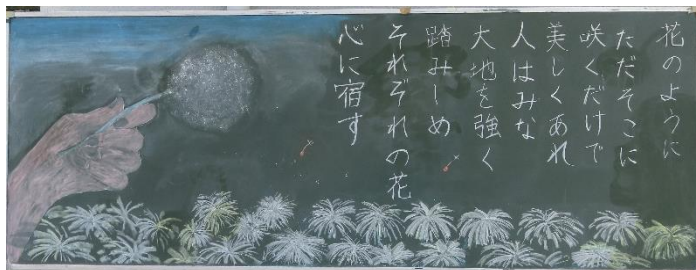 花のように
ただそこに
咲くだけで
美しくあれ
人はみな
大地を強く
踏みしめ
それぞれの花
心に宿す